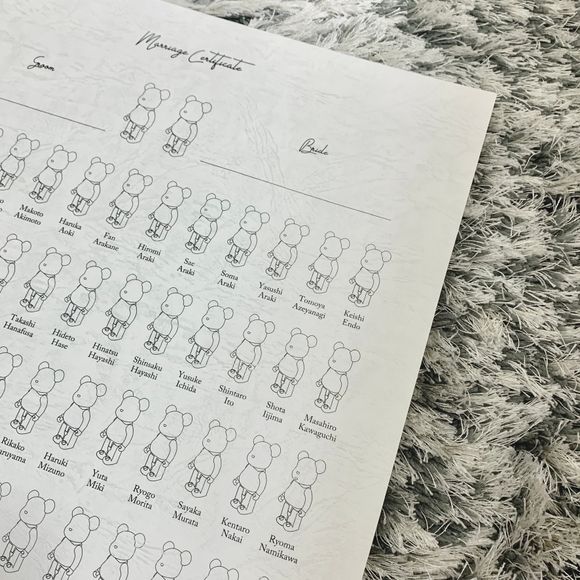 Marriage Certificate
Groom
Bride
Makoto
Akimoto
Haruka
Aoki
Fan
Arakane
Hiromi
Araki
Sae
Araki
Soma
Araki
Yasushi
Araki
Tomoya
Azeyanagi
Keishi
Endo
Takashi
Hanafusa
Hideto
Hase
Hinatsu
Hayashi
Shinsaku
Hayashi
Yusuke
Ichida
Shintaro
Ito
Shota
Iijima
Masahiro
Kawaguchi
Rikako
Haruki
Mizuno
Yuta
Miki
Ryogo
Morita
Sayaka
Murata
Kentaro
Nakai
Ryoma
Namikawa